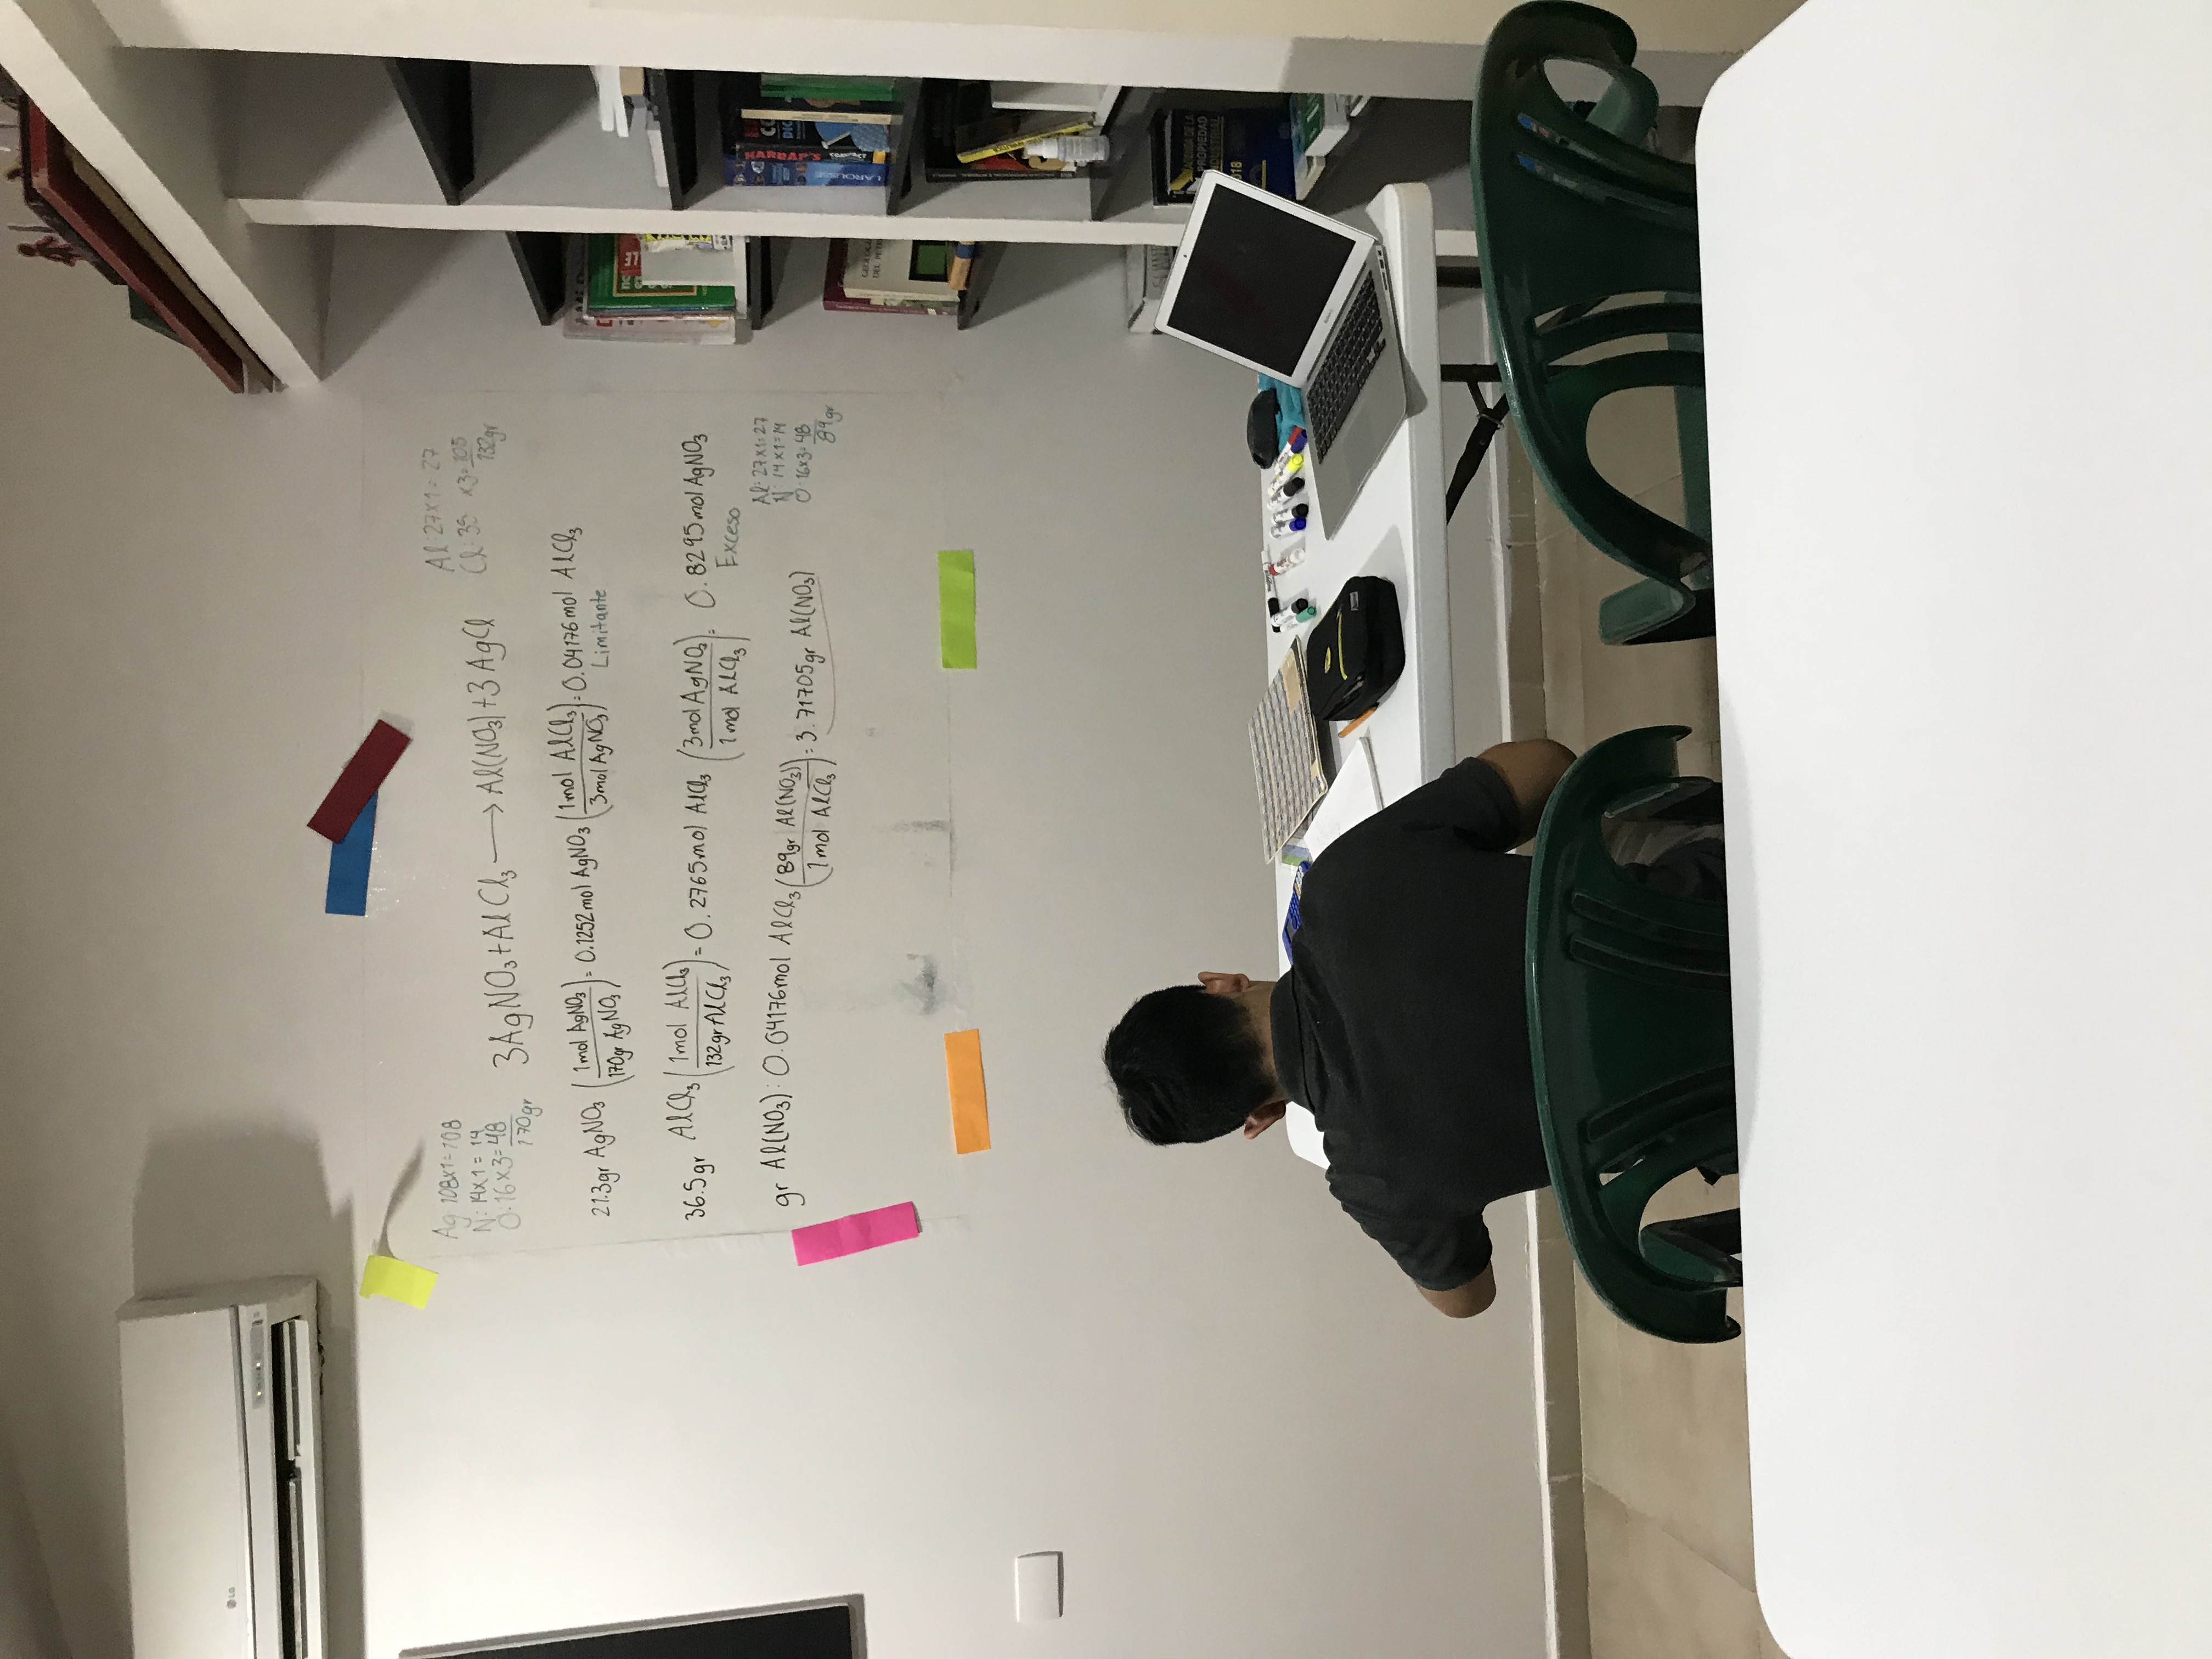 LG
Ag: 108x1=108
N: 14x1=14
O: 16x3=48
170gr
Al: 27x1=27
Cl: 35 x3=105
132gr
3AgNO₃+AlCl₃→Al(NO₃)+3AgCl
21.3gr AgNO₃ (1mol AgNO₃/170gr AgNO₃)= 0.1252mol AgNO₃ (1mol AlCl₃/3mol AgNO₃)= 0.04176mol AlCl₃
Limitante
36.5gr AlCl₃ (1mol AlCl₃/132gr AlCl₃)= 0.2765mol AlCl₃ (3mol AgNO₃/1mol AlCl₃)= 0.8295mol AgNO₃
Exceso
gr Al(NO₃): 0.04176mol AlCl₃ (89gr Al(NO₃)/1mol AlCl₃)= 3.71705gr Al(NO₃)
Al: 27x1=27
N: 14x1=14
O: 16x3=48
89gr
LAROUSSE
DEL
PROPIEDAD
INDUSTRIAL